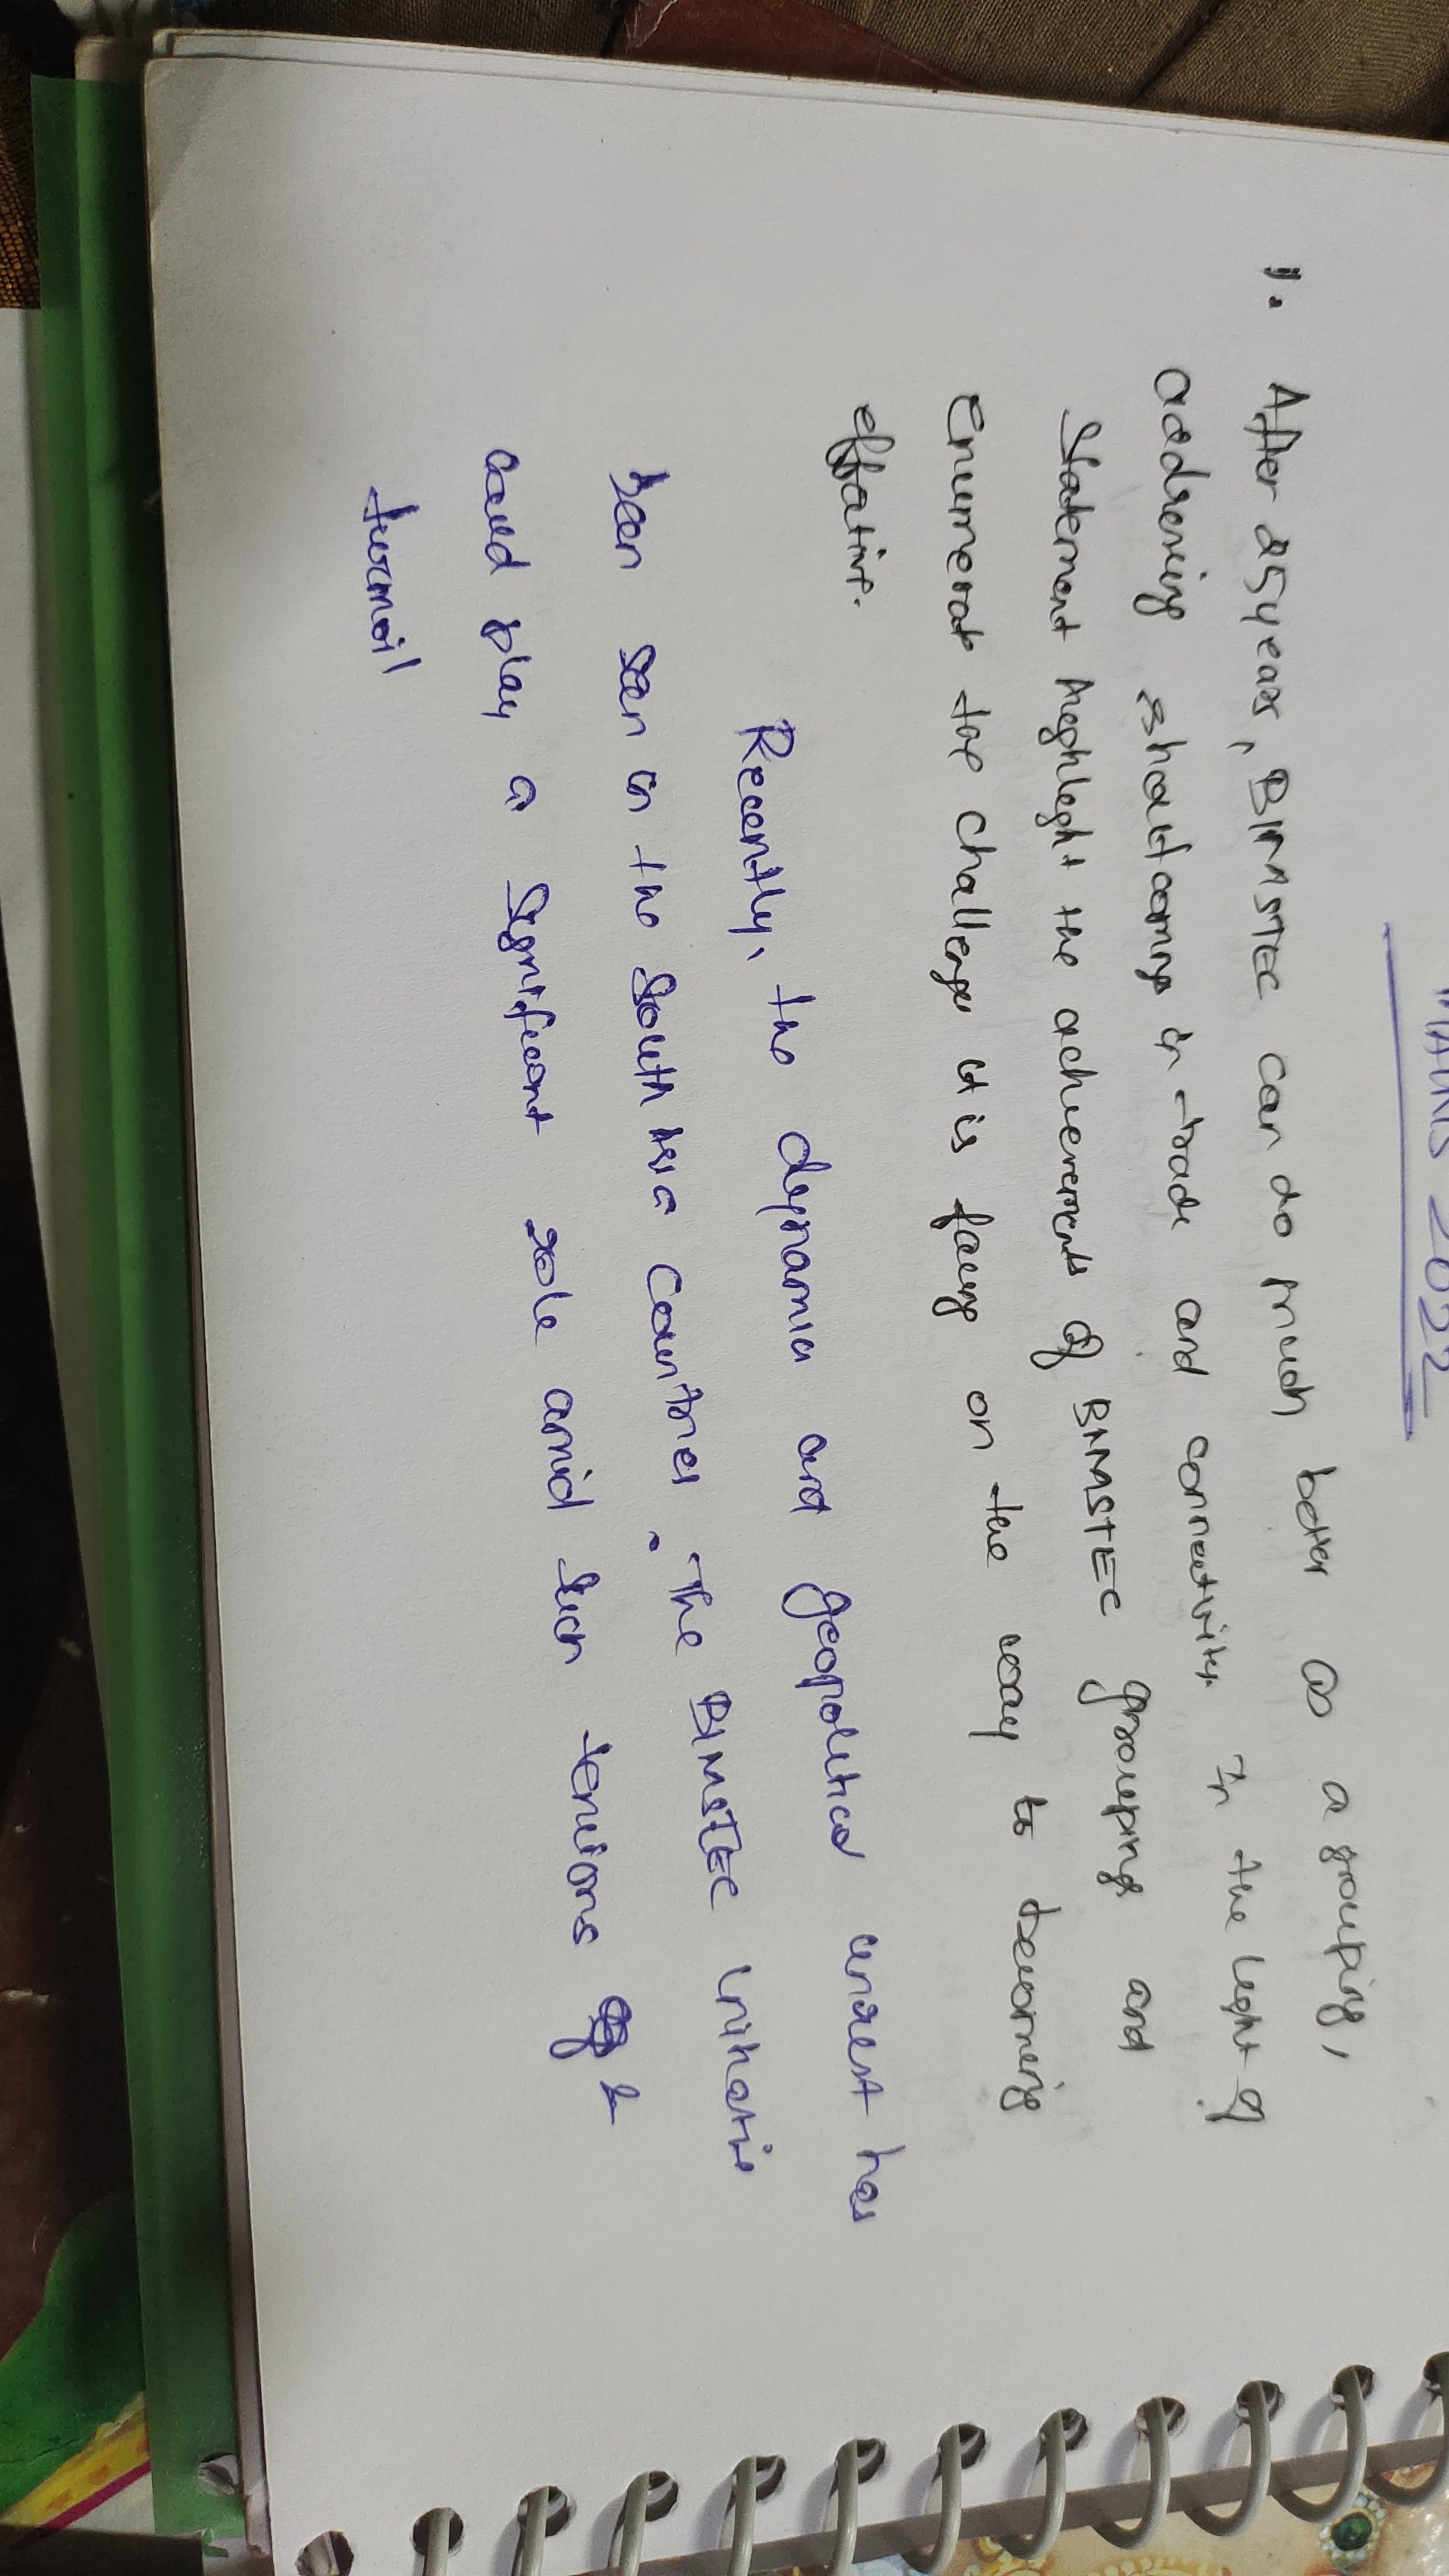 2022
1. After 25 years, BIMSTEC can do much better as a grouping,
addressing shortcomings in trade and connectivity. In the light of
Statement highlight the achievements of BIMSTEC grouping and
Enumerate the challenges it is facing on the way to becoming
effective.
Recently, the dynamics and geopolitical unrest has
been seen in the South Asia Countries. The BIMSTEC initiative
could play a significant role amid such tensions &
turmoil